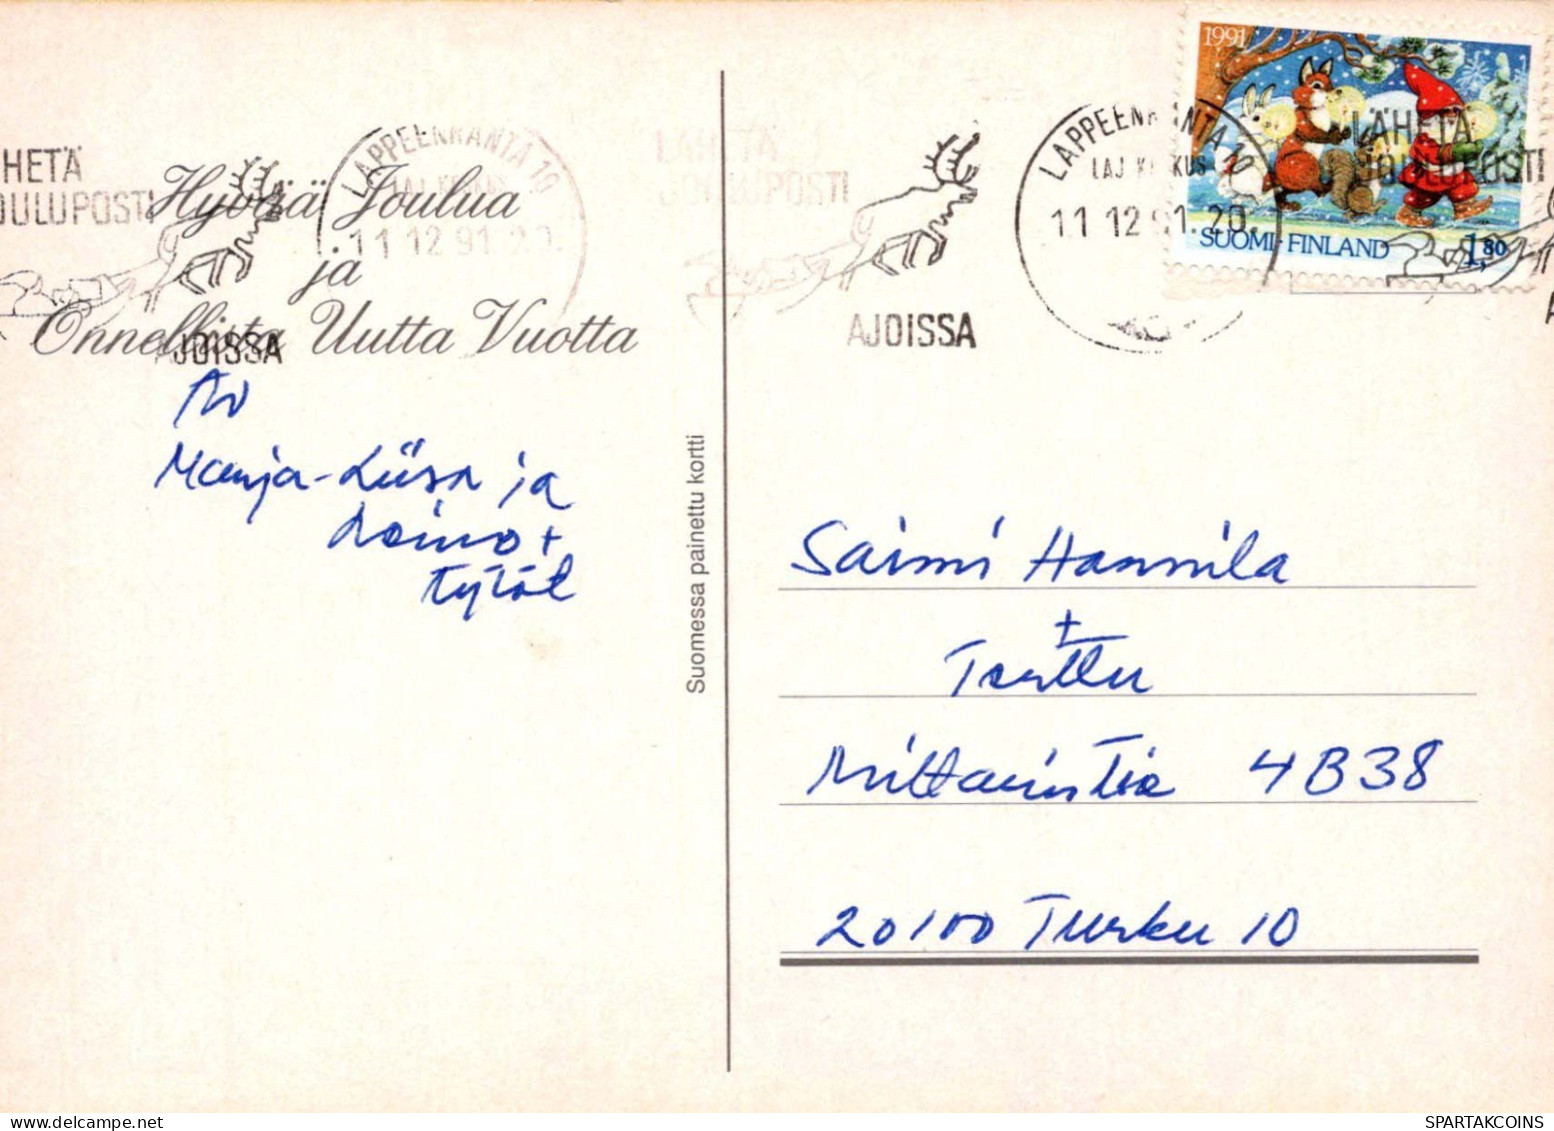 1991
SUOMI-FINLAND 1,80
LAPPEENRANTA 10
LAJ. KESKUS
11 12 91. 20.
LÄHETÄ
JOULUPOSTI
AJOISSA
LAPPEENRANTA 10
LAJ. KESKUS
11 12 91 20.
LÄHETÄ
JOULUPOSTI
AJOISSA
LÄHETÄ
JOULUPOSTI
Hyvää Joulua
ja
Onnellista Uutta Vuotta
Marja-Liisa ja
Raimo +
tytöt
Suomessa painettu kortti
Saimi Hannila
+
Terttu
Mittarintie 4B38
20100 Turku 10
SPARTAKCOINS